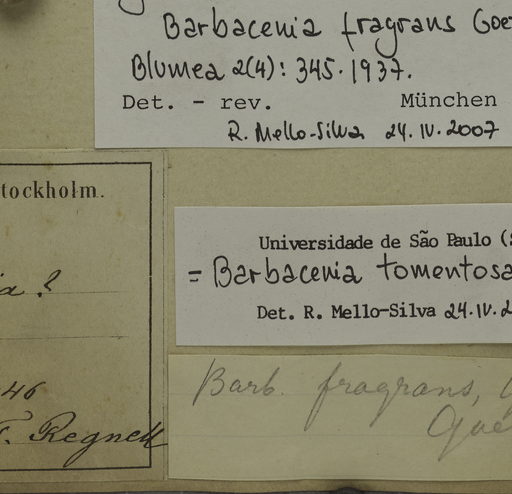 Barbacenia fragrans Goe
Blumea 2(4): 345. 1937.
Det. - rev. München
R. Mello-Silva 24.IV.2007
tockholm.
ia?
46
F. Regnell
Universidade de São Paulo (S
= Barbacenia tomentosa
Det. R. Mello-Silva 24.IV.2
Barb. fragrans, G
Goe